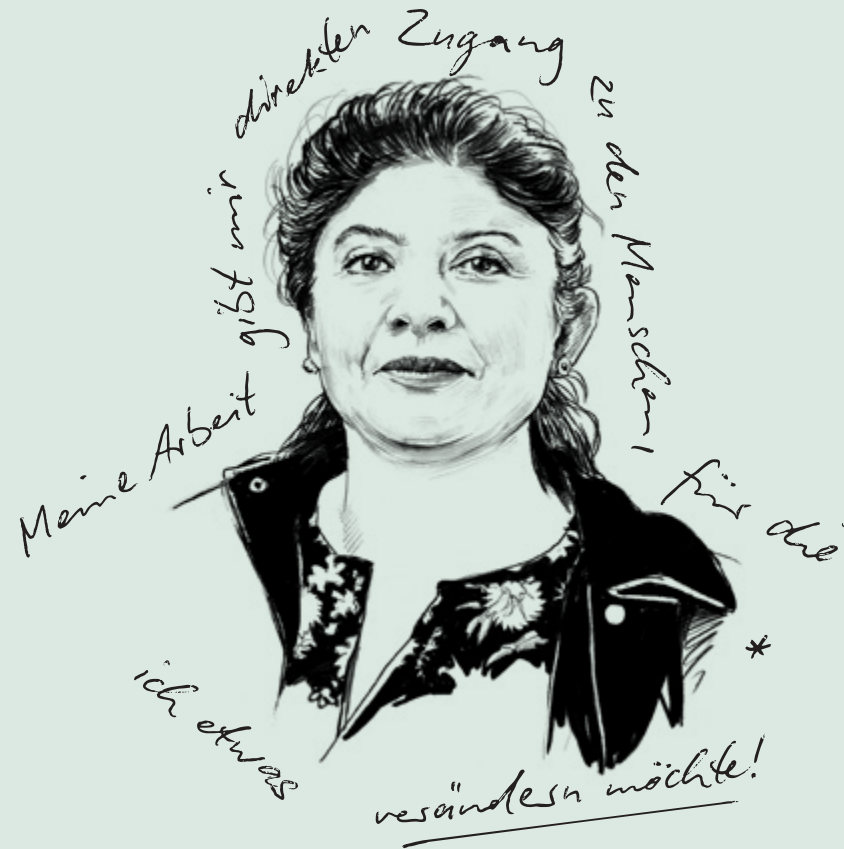 Meine Arbeit gibt mir direkten Zugang zu den Menschen, für die
ich etwas
verändern möchte!
*